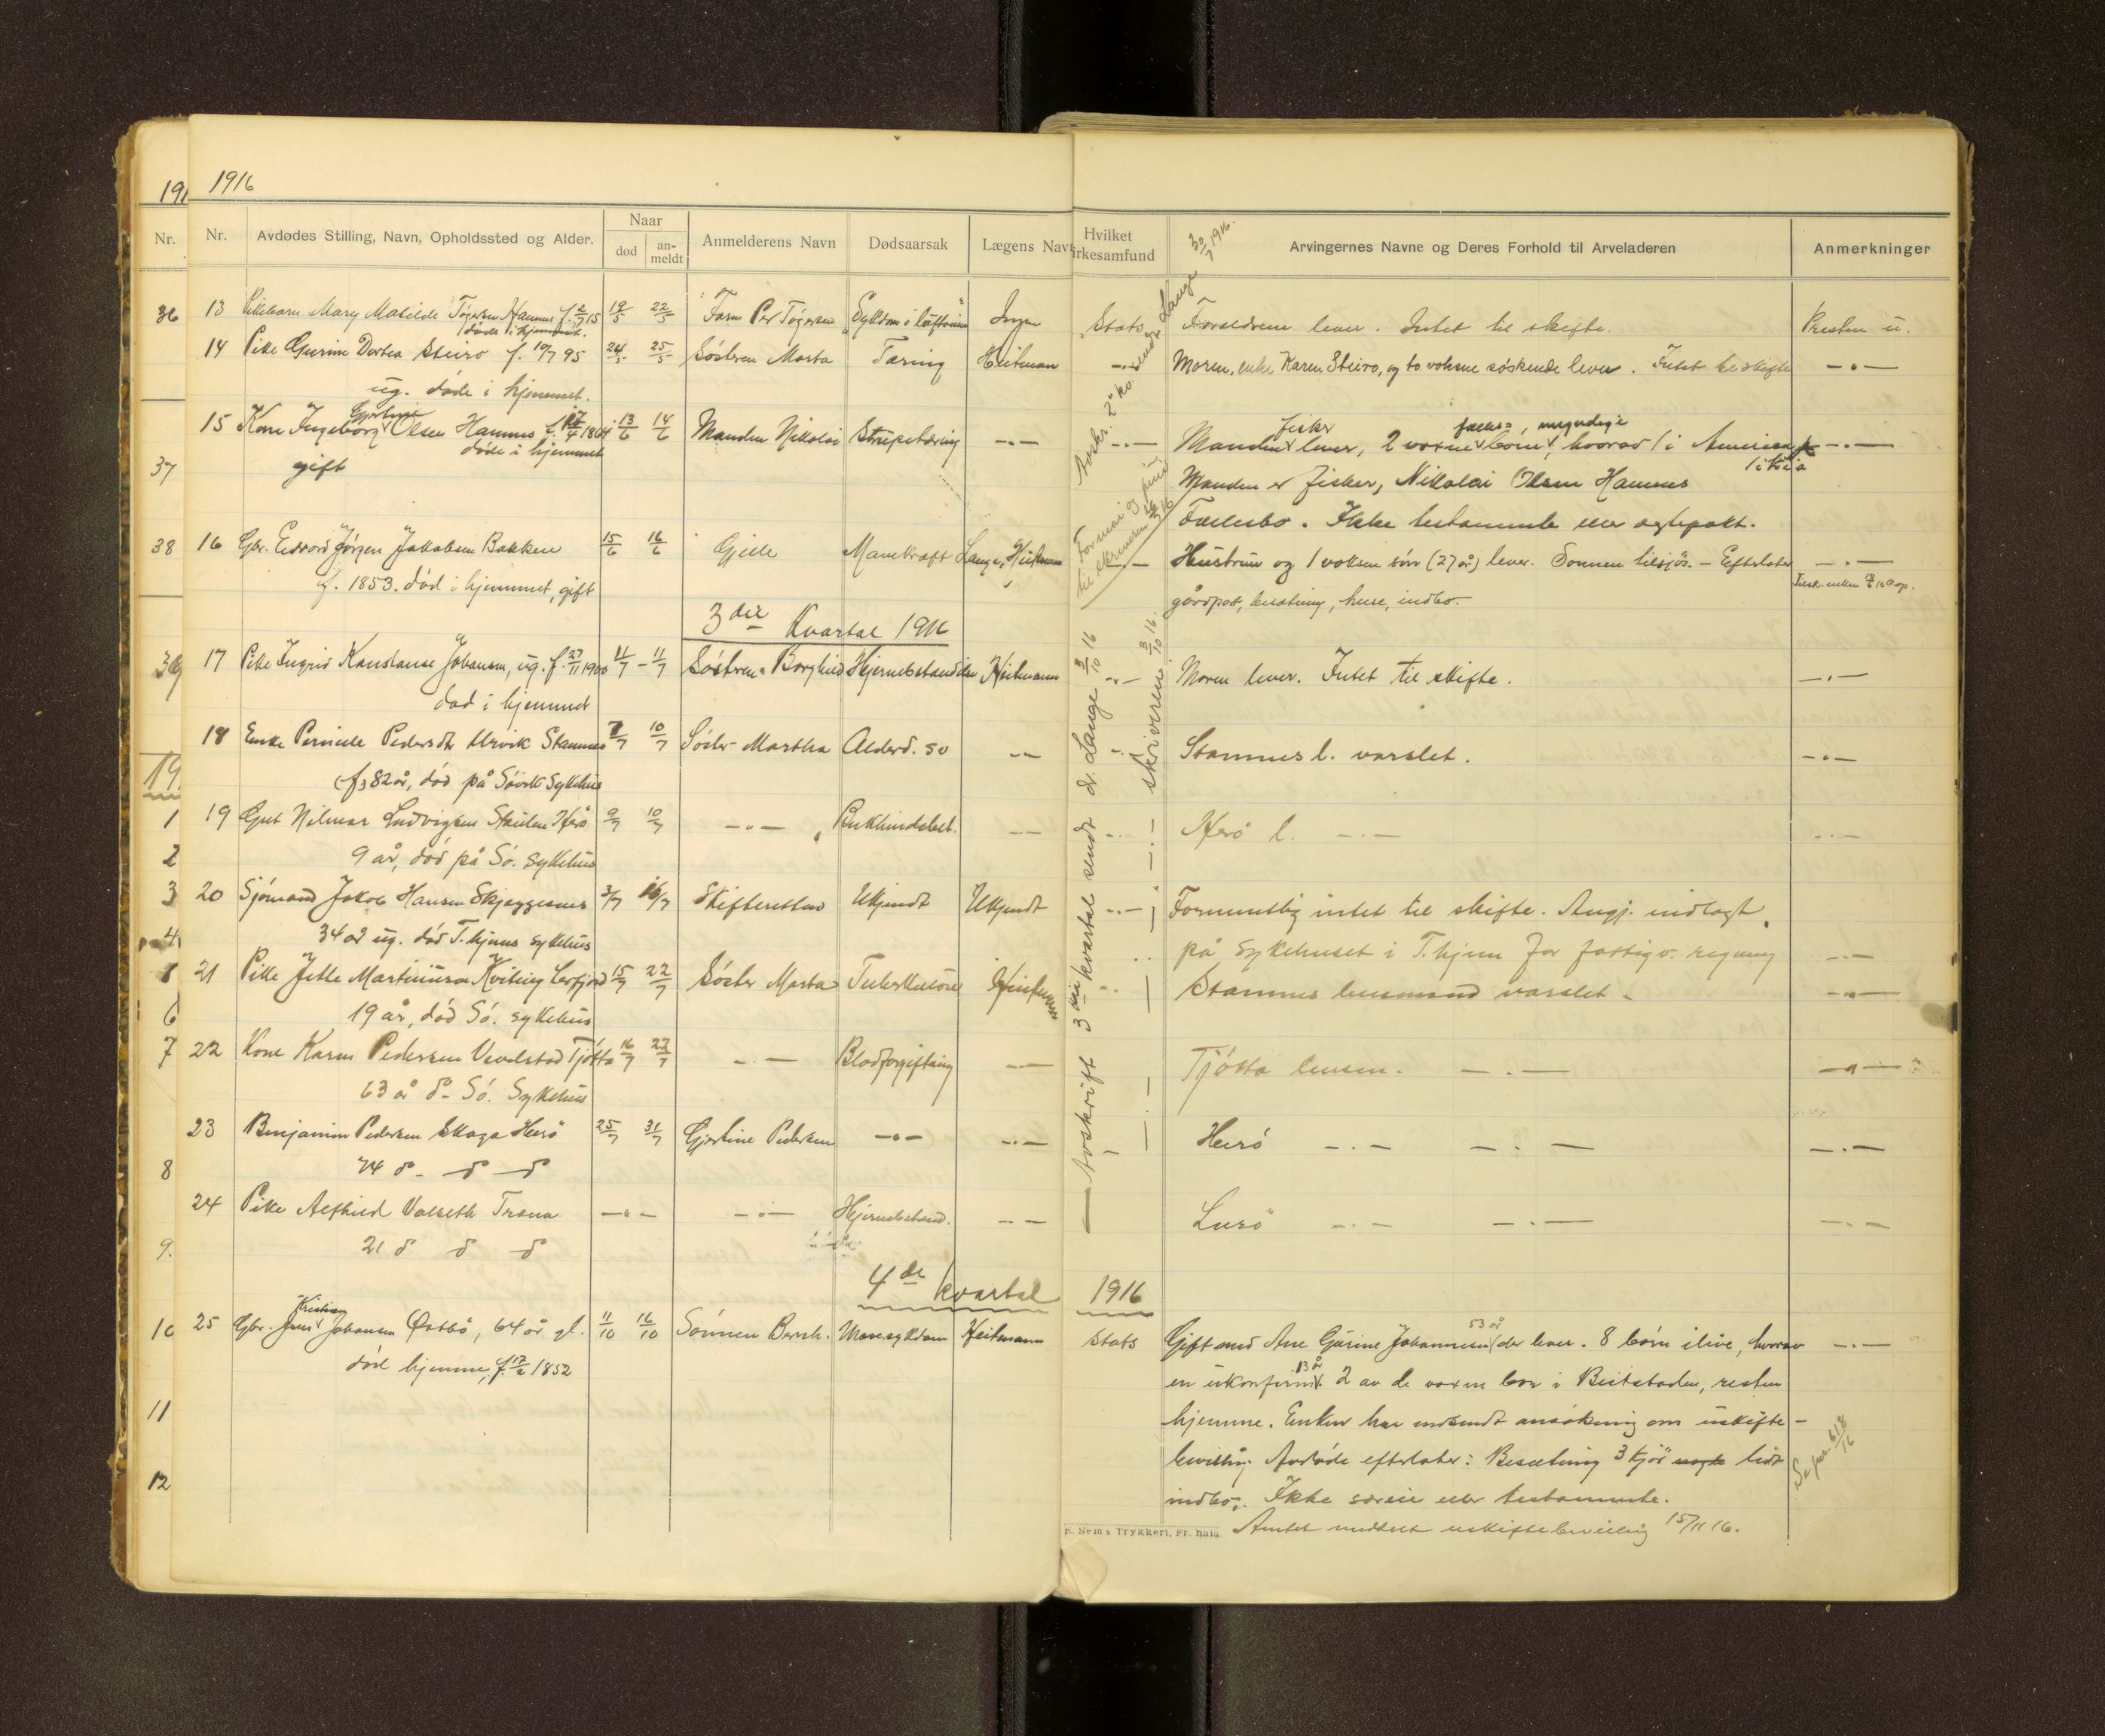 191 1916
Nr. Nr. Avdødes Stilling, Navn, Opholdssted og Alder. Naar død an-meldt Anmelderens Navn Dødsaarsak Lægens Nav Hvilket irkesamfund 30/7 1916. Arvingernes Navne og Deres Forhold til Arveladeren Anmerkninger
36 13 Pikebarn Mary Matilde Tøgersen Hamnes f. 2/7 15 19/5 22/5 Faren Per Tøgersen Sykdom i luftveiene Ingen Stats Foreldrene lever. Intet til skifte. Presten u.
døde i hjemmet.
14 Pike Gurine Dortea Steiro f. 10/7 95 24/5 25/5 Søstren Marta Tæring Heitmann Moren, enke Karen Steiro, og to voksne søskende lever. Intet til skifte —"—
ug. døde i hjemmet.
15 Kone Ingeborg Olsen Hamnes 1864 13/6 14/6 Manden Nikolai Strupetæring —"— —"— Manden fisker lever, 2 voxne fælles-, myndige børn, hvorav 1 i Amerika —"—
døde i hjemmet
37 gift Manden er fisker, Nikolai Olsen Hamnes
Fællesbo. Ikke testamente eller egtepakt.
38 16 Gbr. Edvard Jørgen Jakobsen Bakken 15/6 16/6 Gjelle Mavekræft Lange, Heitmann — Hustrun og 1 voksen søn (27 år) lever. Sønnen tilsjøs. — Efterlater —"—
f. 1853. død i hjemmet, gift gårdpart, besætning, huse, indbo.
3die Kvartal 1916
39 17 Pike Ingrid Konstanse Johansen, ug. f. 27/11 1900 11/7 – 11/7 Søstren Borghild Hjernebetændelse Heitmann —"— Moren lever. Intet til skifte. —"—
død i hjemmet
18 Enke Pernille Pedersdtr Ulvvik Stamnes 7/7 10/7 Søster Martha Alderd. sv —"— Stamnes l. varslet. —"—
19 82 år, død på Søvik Sykehus
1 19 Gut Hilmar Ludvigsen Herø 9/7 10/7 —"— Bukhindebet. —"— Herø l. —"— —"—
2 9 år, død på Sø. Sykehus
3 20 Sjømand Jakob Hansen Skjeggesnes 3/7 16/7 Skifteretten Ukjendt Ukjendt —"— Formentlig intet til skifte. Angj. indlagt
4 34 år ug. død T.hjems sykehus på sykehuset i T.hjem for fattigv. regning —"—
21 Pike Jette Martinusen Kviting Leirfjord 15/7 22/7 Søster Marta Tuberkulose Heitmann —"— Stamnes lensmand varslet. —"—
6 19 år, død Sø. sykehus
7 22 Kone Karen Pedersen Vevelstad Tjøtta 16/7 22/7 —"— Blodforgiftning —"— Tjøtta lensm. —"— —"—
63 år do Sø. Sykehus
23 Benjamin Pedersen Skaga Herø 25/7 31/7 Gjertine Pedersen —"— —"— Herø —"— —"— —"—
8 74 do do do
24 Pike Alfhild Valseth Træna —"— —"— Hjernebetænd. —"— Lurø —"— —"— —"—
9. 21 do do do
4de kvartal 1916
10 25 Gbr. Jens Kristian Johansen Østbø, 64 år gl. 11/10 16/10 Sønnen Bernh. Mavesykdom Heitmann Stats Gift med Ane Gurine Johannesen 53 år der lever. 8 børn ilive, hvorav —"—
død hjemme, f. 17/2 1852 en ukonfirm. 13 år 2 av de voxne bor i Beitstaden, resten
11 hjemme. Enken har indsendt ansøkning om uskifte-
bevilling. Avdøde efterlater: Besætning 3 kjør lidt
12 indbo. Ikke særeie eller testamente.
E. Sems Trykkeri, Fr.hald. Amtet meddelt uskiftebevilling 15/11 16.
Avskr. 2 kv. sendt dr. Lange
Avskrift 3die kvartal sendt dr. Lange 3/10 16
—"— skriveren 3/10 16.